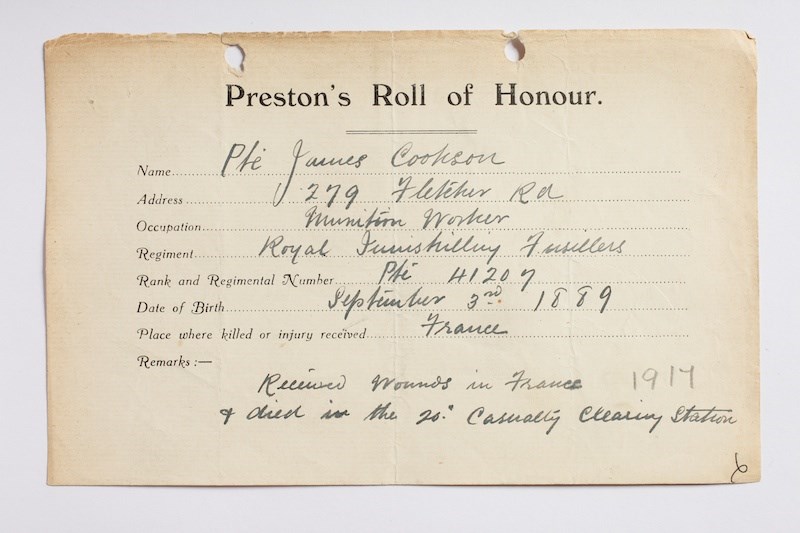 Preston's Roll of Honour.
Name Pte James Cookson
Address 279 Fletcher Rd
Occupation Munition Worker
Regiment Royal Inniskilling Fusillers
Rank and Regimental Number Pte 41207
Date of Birth September 3rd 1889
Place where killed or injury received France
Remarks :—
Received Wounds in France 1917
& died in the 20th Casualty Clearing Station